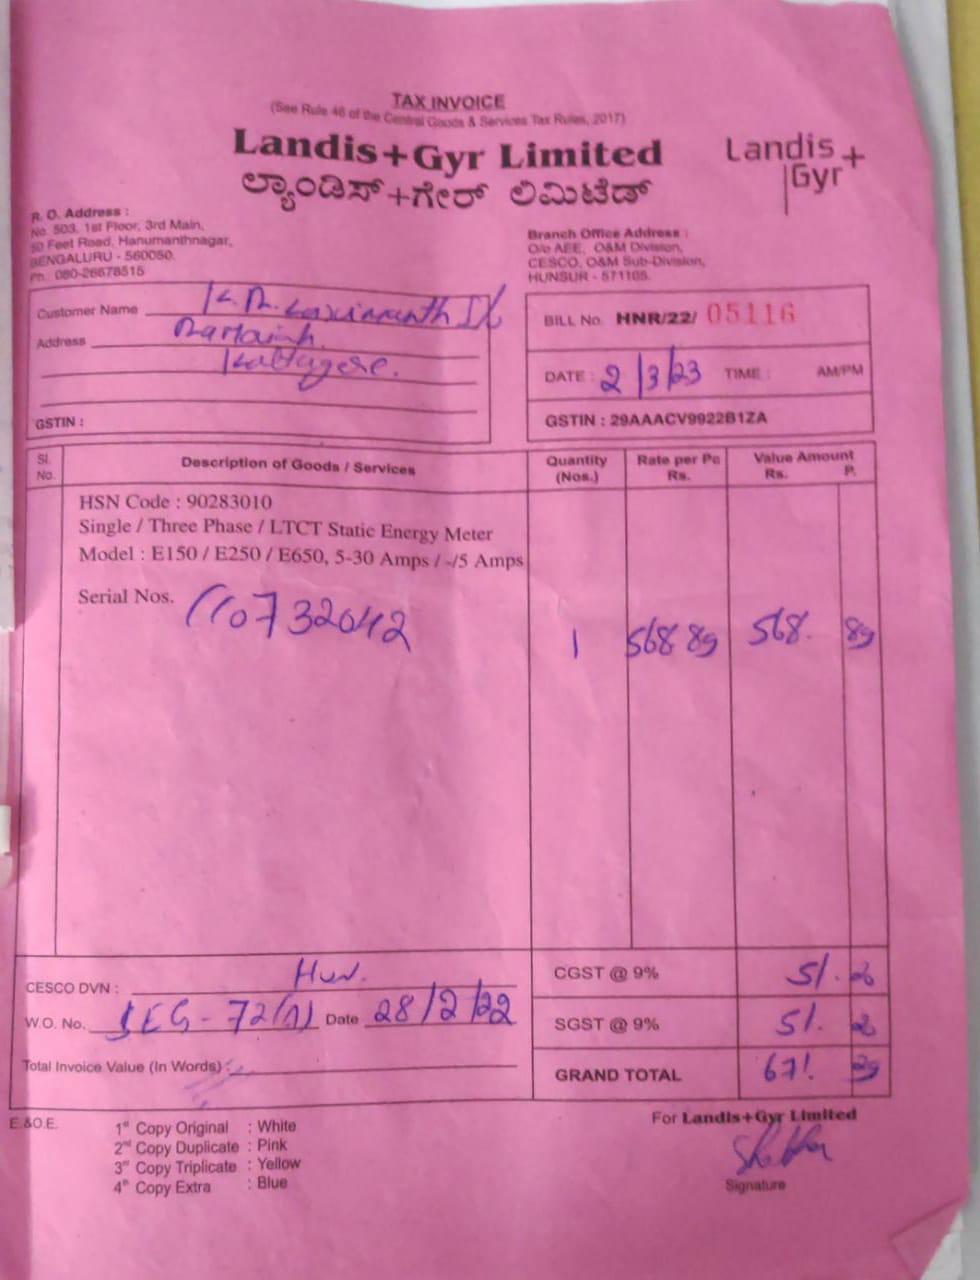 TAX INVOICE
(See Rule 46 of the Central Goods & Services Tax Rules, 2017)
Landis+Gyr Limited
ಲ್ಯಾಂಡಿಸ್+ಗೇರ್ ಲಿಮಿಟೆಡ್
Landis+
Gyr
R. O. Address :
No. 503, 1st Floor, 3rd Main,
50 Feet Road, Hanumanthnagar,
BENGALURU - 560050.
Ph. 080-26678515
Branch Office Address :
O/o AEE, O&M Division,
CESCO, O&M Sub-Division,
HUNSUR - 571105.
Customer Name
Address
GSTIN :
BILL No. HNR/22/ 05116
DATE : 2/3/23 TIME : AM/PM
GSTIN : 29AAACV9922B1ZA
Sl. No. Description of Goods / Services Quantity (Nos.) Rate per Pc Rs. Value Amount Rs. P.
HSN Code : 90283010
Single / Three Phase / LTCT Static Energy Meter
Model : E150 / E250 / E650, 5-30 Amps / -/5 Amps
Serial Nos. 110732042 1 568 89 568. 89
CESCO DVN : Hun. CGST @ 9% 51. 2
W.O. No. Date 28/2/22 SGST @ 9% 51. 2
Total Invoice Value (In Words) : GRAND TOTAL 671. 29
E.&O.E.
1st Copy Original : White
2nd Copy Duplicate : Pink
3rd Copy Triplicate : Yellow
4th Copy Extra : Blue
For Landis+Gyr Limited
Signature